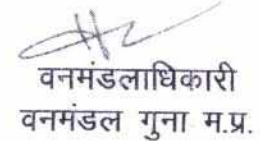 वनमंडलाधिकारी
वनमंडल गुना म.प्र.